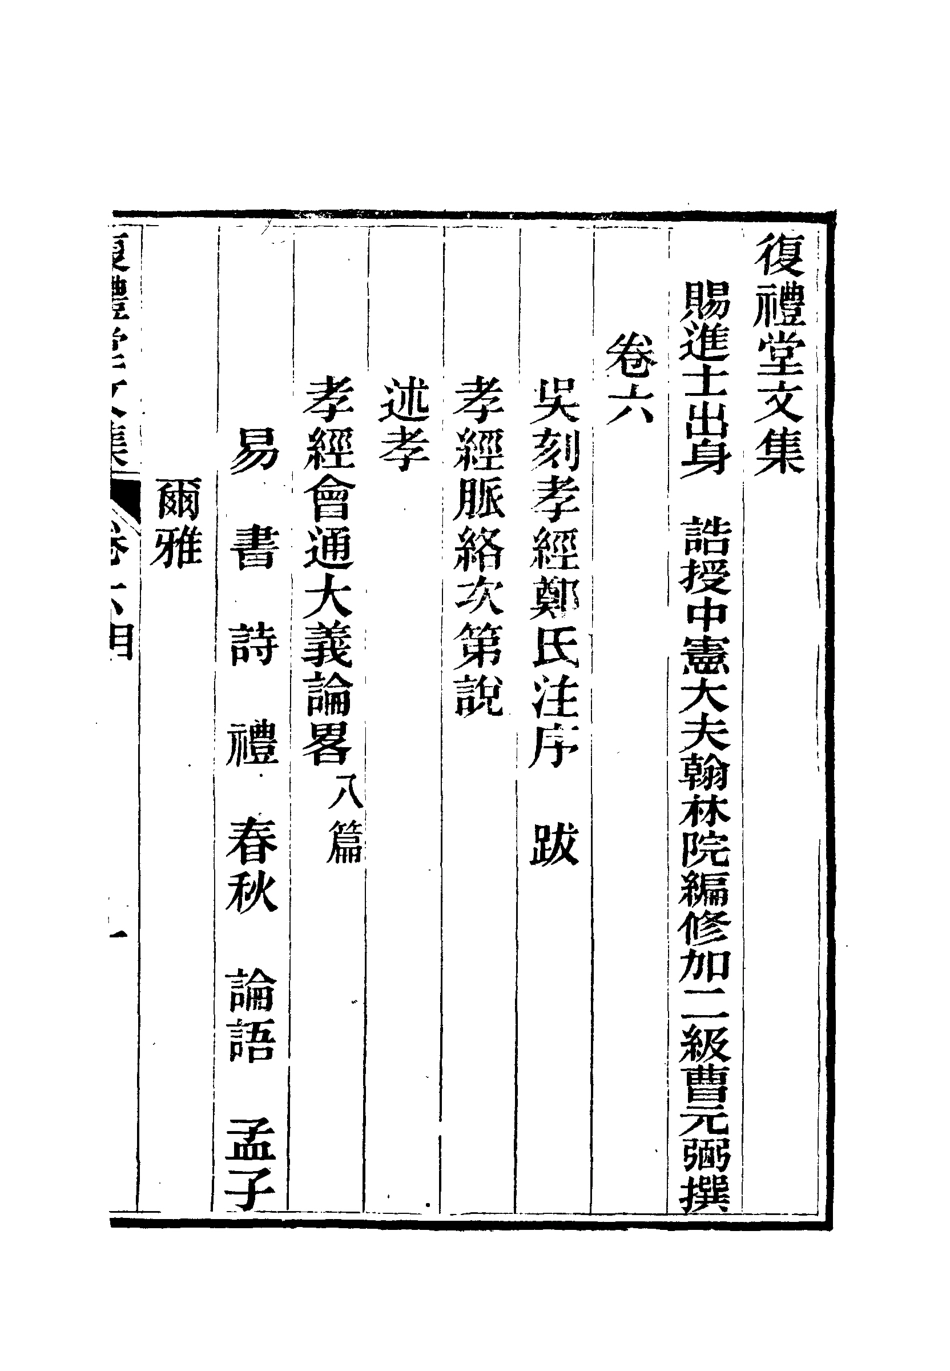 復禮堂文集
賜進士出身　誥授中憲大夫翰林院編修加二級曹元弼撰
卷六
吳刻孝經鄭氏注序　跋
孝經脈絡次第說
述孝
孝經會通大義論畧八篇
易　書　詩　禮　春秋　論語　孟子
爾雅
復禮堂文集　卷六目　一